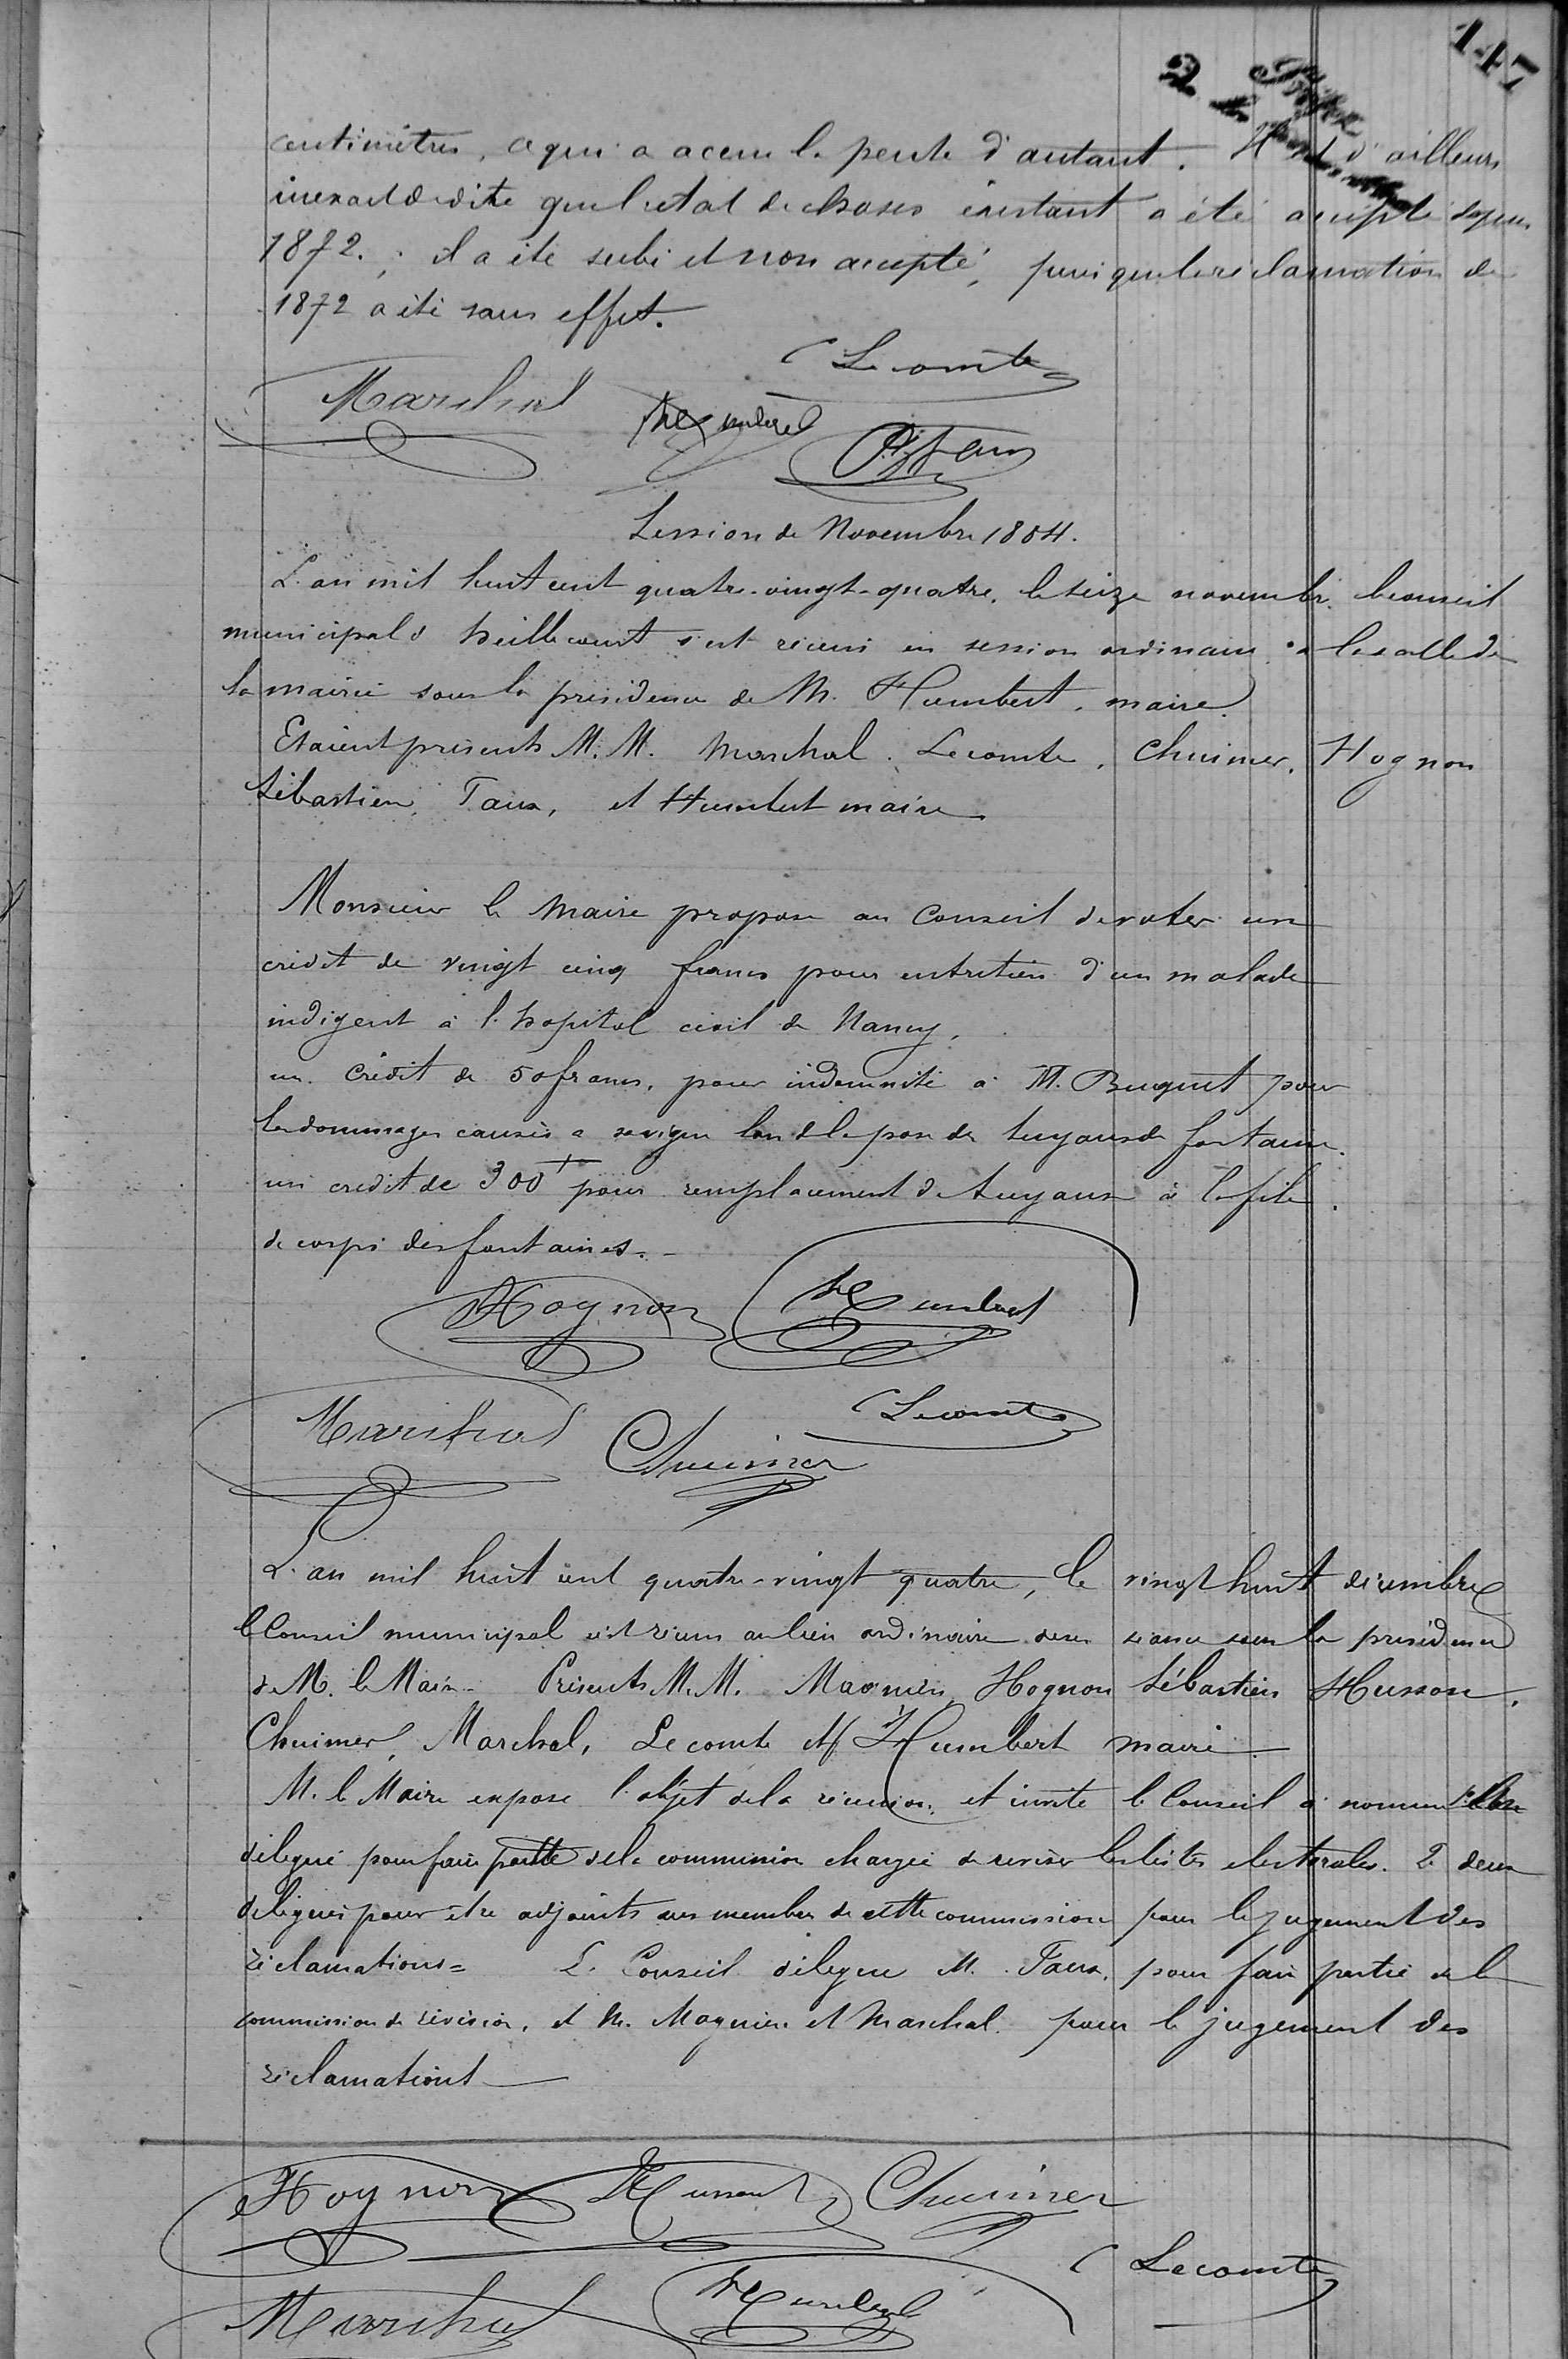 147
2
centimètres, ce qui a accru la pente d'autant. Il est d'ailleurs
inexact de dire que l'état de choses existant a été accepté depuis
1872. ; il a été subi et non accepté, puisque la réclamation de
1872 a été sans effet.
Lecomte
Marchal Humbert
Session de Novembre 1884.
L'an mil huit cent quatre-vingt-quatre, le seize novembre, le conseil
municipal d' Heillecourt s'est réuni en session ordinaire à la salle de
la mairie sous la présidence de M. Humbert, maire.
Etaient présents M. M. Marchal, Lecomte, Chuimer, Hognon
Sébastien, Taux, et Humbert maire
Monsieur le Maire propose au Conseil de voter un
crédit de vingt cinq francs pour entretien d'un malade
indigent à l'hopital civil de Nancy,
un crédit de 50 francs, pour indemnité à M. Buquet pour
les dommages causés a sa vigne lors de la pose des tuyaux de fontaine.
un credit de 300f pour remplacement de tuyaux à la file
de corps des fontaines.
Hognon Humbert
Lecomte
Marchal Chuimer
L'an mil huit cent quatre-vingt quatre, le vingt huit décembre
le Conseil municipal s'est réuni au lieu ordinaire de ses séances sous la présidence
de M. le Maire. Présents M. M. Magnien, Hognon Sébastien Husson,
Chuimer, Marchal, Lecomte et Humbert maire.
M. le Maire expose l'objet de la réunion, et invite le Conseil à nommer 1° un
délégué pour faire partie de la commission chargée de reviser les listes electorales. 2° deux
délégués pour être adjoints aux membres de cette commission pour le jugement des
réclamations = Le Conseil délègue M. Taux, pour faire partie de la
commission de révision, et M. Magnien et Marchal pour le jugement des
réclamations
Hognon Husson Chuimer
Lecomte
Marchal Humbert